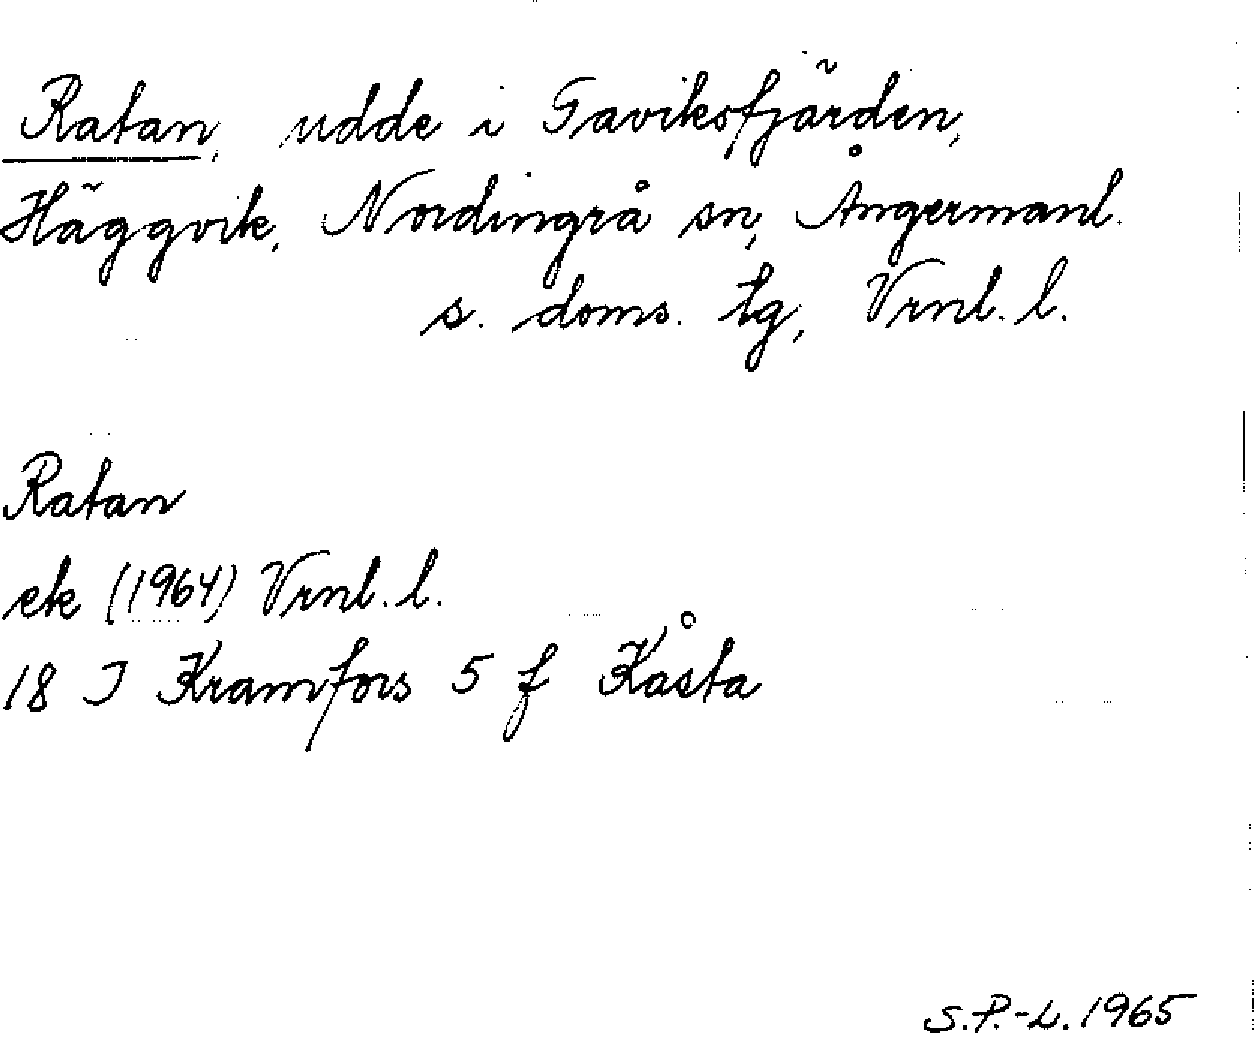 Ratan, udde i Gaviksfjärden,
Häggvik, Nordingrå sn, Ångermanl.
s. doms. tg, Vrnl. l.
Ratan
ek (1964) Vrnl. l.
18 I Kramfors 5 f Kåsta
S.P.-L. 1965